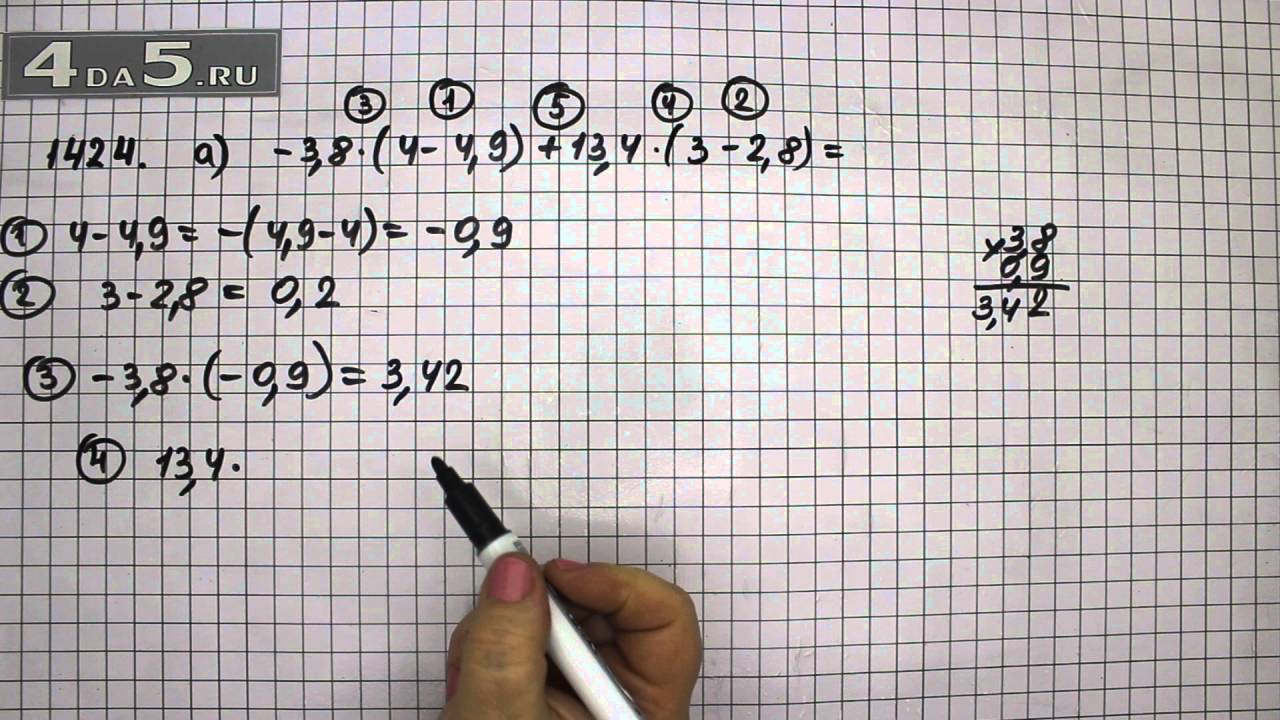 4DA5.RU
③ ① ⑤ ④ ②
1424. а) -3,8·(4-4,9)+13,4·(3-2,8)=
① 4-4,9=-(4,9-4)=-0,9
② 3-2,8=0,2
③ -3,8·(-0,9)=3,42
④ 13,4·
×3,8
0,9
3,42